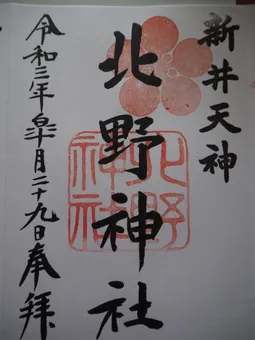 新井天神
北野神社
北野神社
令和三年十月二十九日奉拝